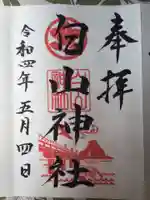 奉拝
白山神社
令和四年五月四日